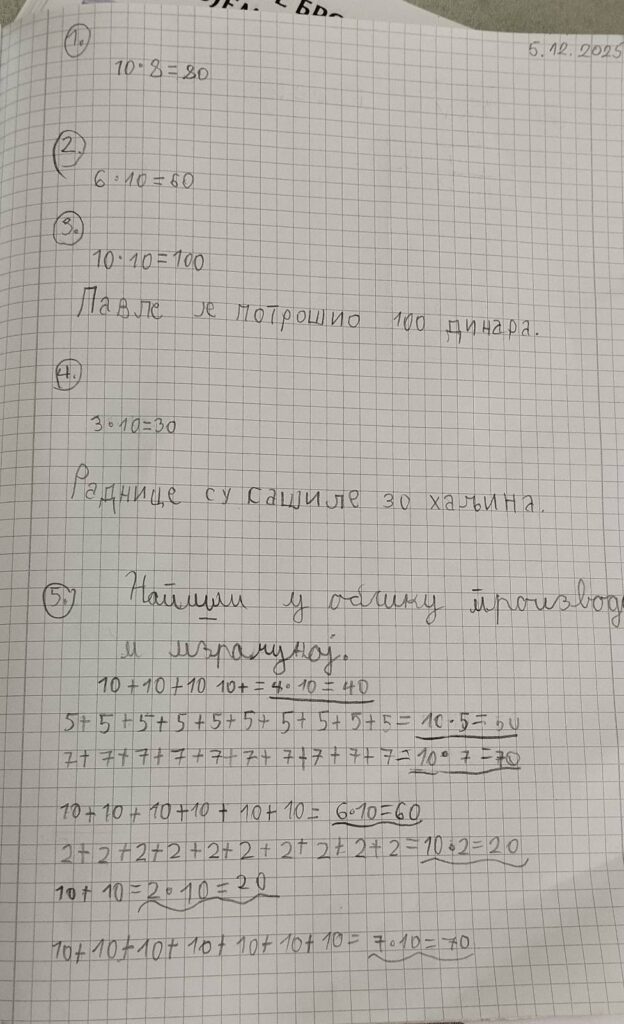 1.
5.12.2025
10·8=80
2.
6·10=60
3.
10·10=100
Павле је потрошио 100 динара.
4.
3·10=30
Раднице су сашиле 30 хаљина.
5. Напиши у облику производ
и израчунај.
10+10+10 10+=4·10=40
5+5+5+5+5+5+5+5+5+5=10·5=50
7+7+7+7+7+7+7+7+7+7=10·7=70
10+10+10+10+10+10=6·10=60
2+2+2+2+2+2+2+2+2+2=10·2=20
10+10=2·10=20
10+10+10+10+10+10+10=7·10=70